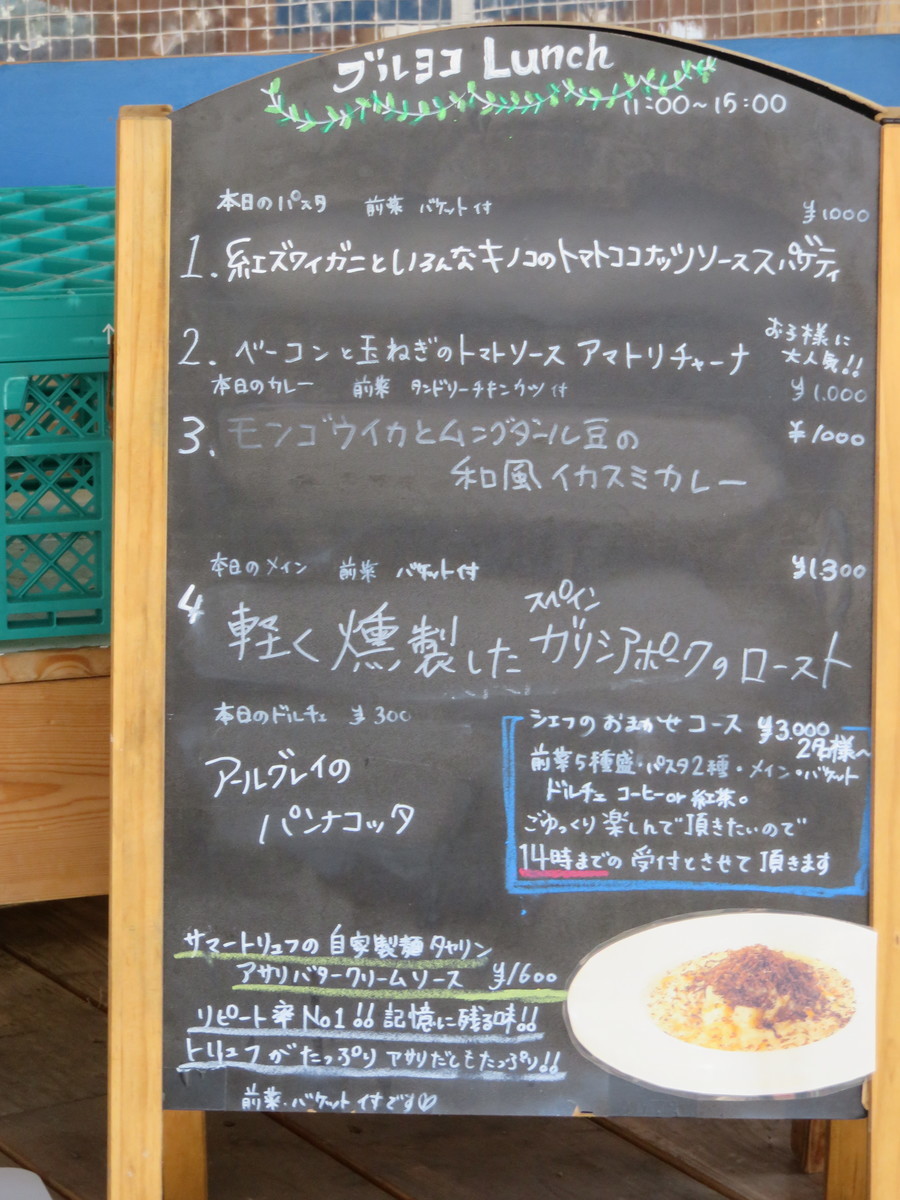 ブルヨコ Lunch
11:00〜15:00
本日のパスタ 前菜 バケット付 ¥1000
1. 紅ズワイガニといろんなキノコのトマトココナッツソーススパゲティ
2. ベーコンと玉ねぎのトマトソース アマトリチャーナ お子様に
大人気!!
本日のカレー 前菜 タンドリーチキン ウツ付 ¥1.000
3. モンゴウイカとムングダール豆の ¥1000
和風イカスミカレー
本日のメイン 前菜 バケット付 ¥1.300
スペイン
4 軽く燻製した ガリシアポークのロースト
本日のドルチェ ¥300
アールグレイの
パンナコッタ
シェフのおまかせコース ¥3.000
2名様〜
前菜5種盛・パスタ2種・メイン・バケット
ドルチェ コーヒーor紅茶。
ごゆっくり楽しんで頂きたいので
14時までの受付とさせて頂きます
サマートリュフの自家製麺タヤリン
アサリバタークリームソース ¥1600
リピート率No1!! 記憶に残る味!!
トリュフがたっぷり アサリだしもたっぷり!!
前菜・バケット付です♡